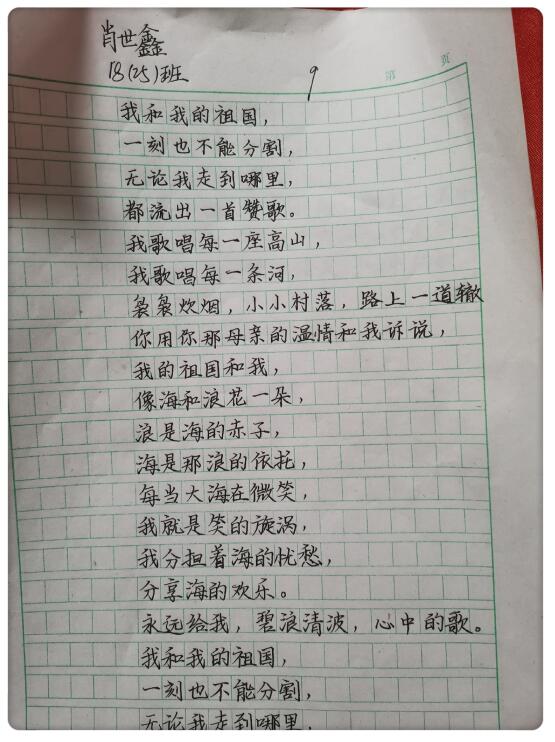 肖世鑫
18(25)班
9
第 页
我和我的祖国，
一刻也不能分割，
无论我走到哪里，
都流出一首赞歌。
我歌唱每一座高山，
我歌唱每一条河，
袅袅炊烟，小小村落，路上一道辙
你用你那母亲的温情和我诉说，
我的祖国和我，
像海和浪花一朵，
浪是海的赤子，
海是那浪的依托，
每当大海在微笑，
我就是笑的旋涡，
我分担着海的忧愁，
分享海的欢乐。
永远给我，碧浪清波，心中的歌。
我和我的祖国，
一刻也不能分割，
无论我走到哪里，